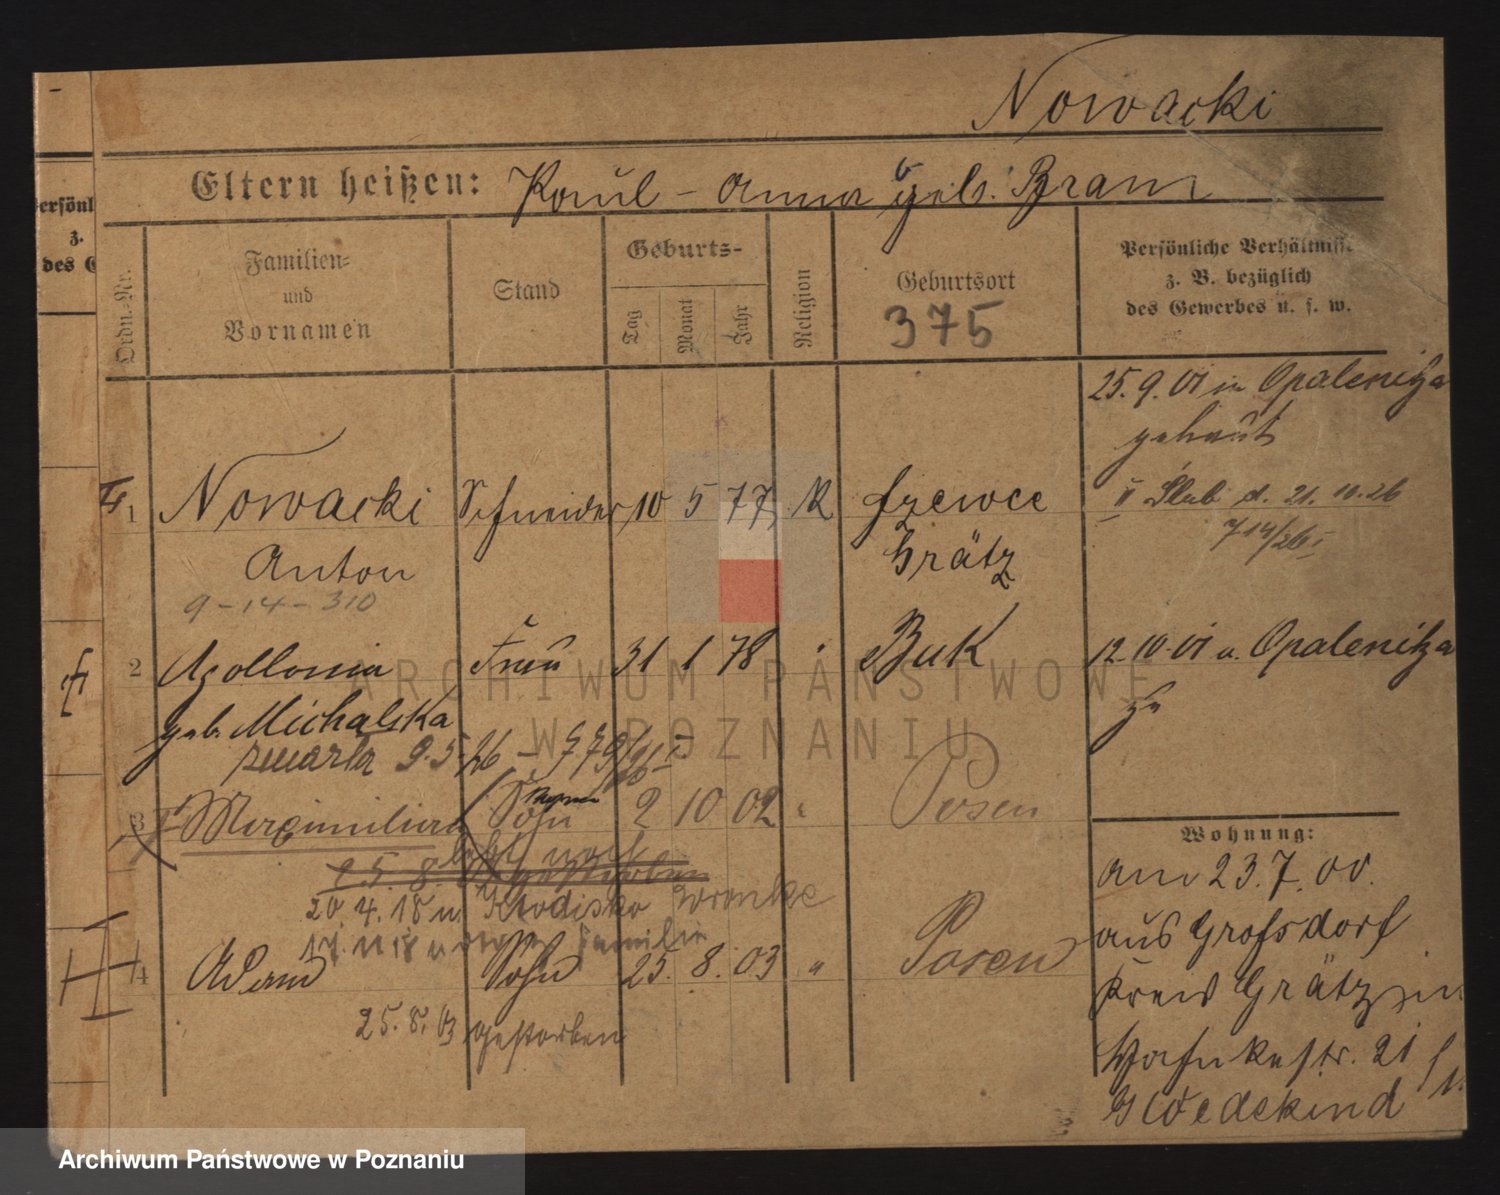 Nowacki
Eltern heißen: Paul - Anna geb. Bram
Ordn.-Nr.
Familien- und Vornamen
Stand
Geburts-
Tag
Monat
Jahr
Religion
Geburtsort
375
Persönliche Verhältnisse
z. B. bezüglich
des Gewerbes u. s. w.
ersönl
z.
des G
25. 9. 01 in Opalenitza
getraut
1 Nowacki Schneider 10 5 77 K
Grätz
II Ślub d. 21. 10. 26
714/26 I
Anton
9-14-310
2 Apollonia Frau 31 1 78 Buk
12. 10. 01 v. Opalenitza
geb. Michalska
zmarła 9.5.26
3 Maximilian Sohn 2 10 02 Posen
Wohnung:
am 23.7.00.
aus Grofsdorf
Kreis Grätz in
20. 4. 18 Wronke
Familie
4 Adam Sohn 25. 8. 03 " Posen
25. 8. 03 gestorben
21
Wedekind
ARCHIWUM PAŃSTWOWE
W POZNANIU
Archiwum Państwowe w Poznaniu